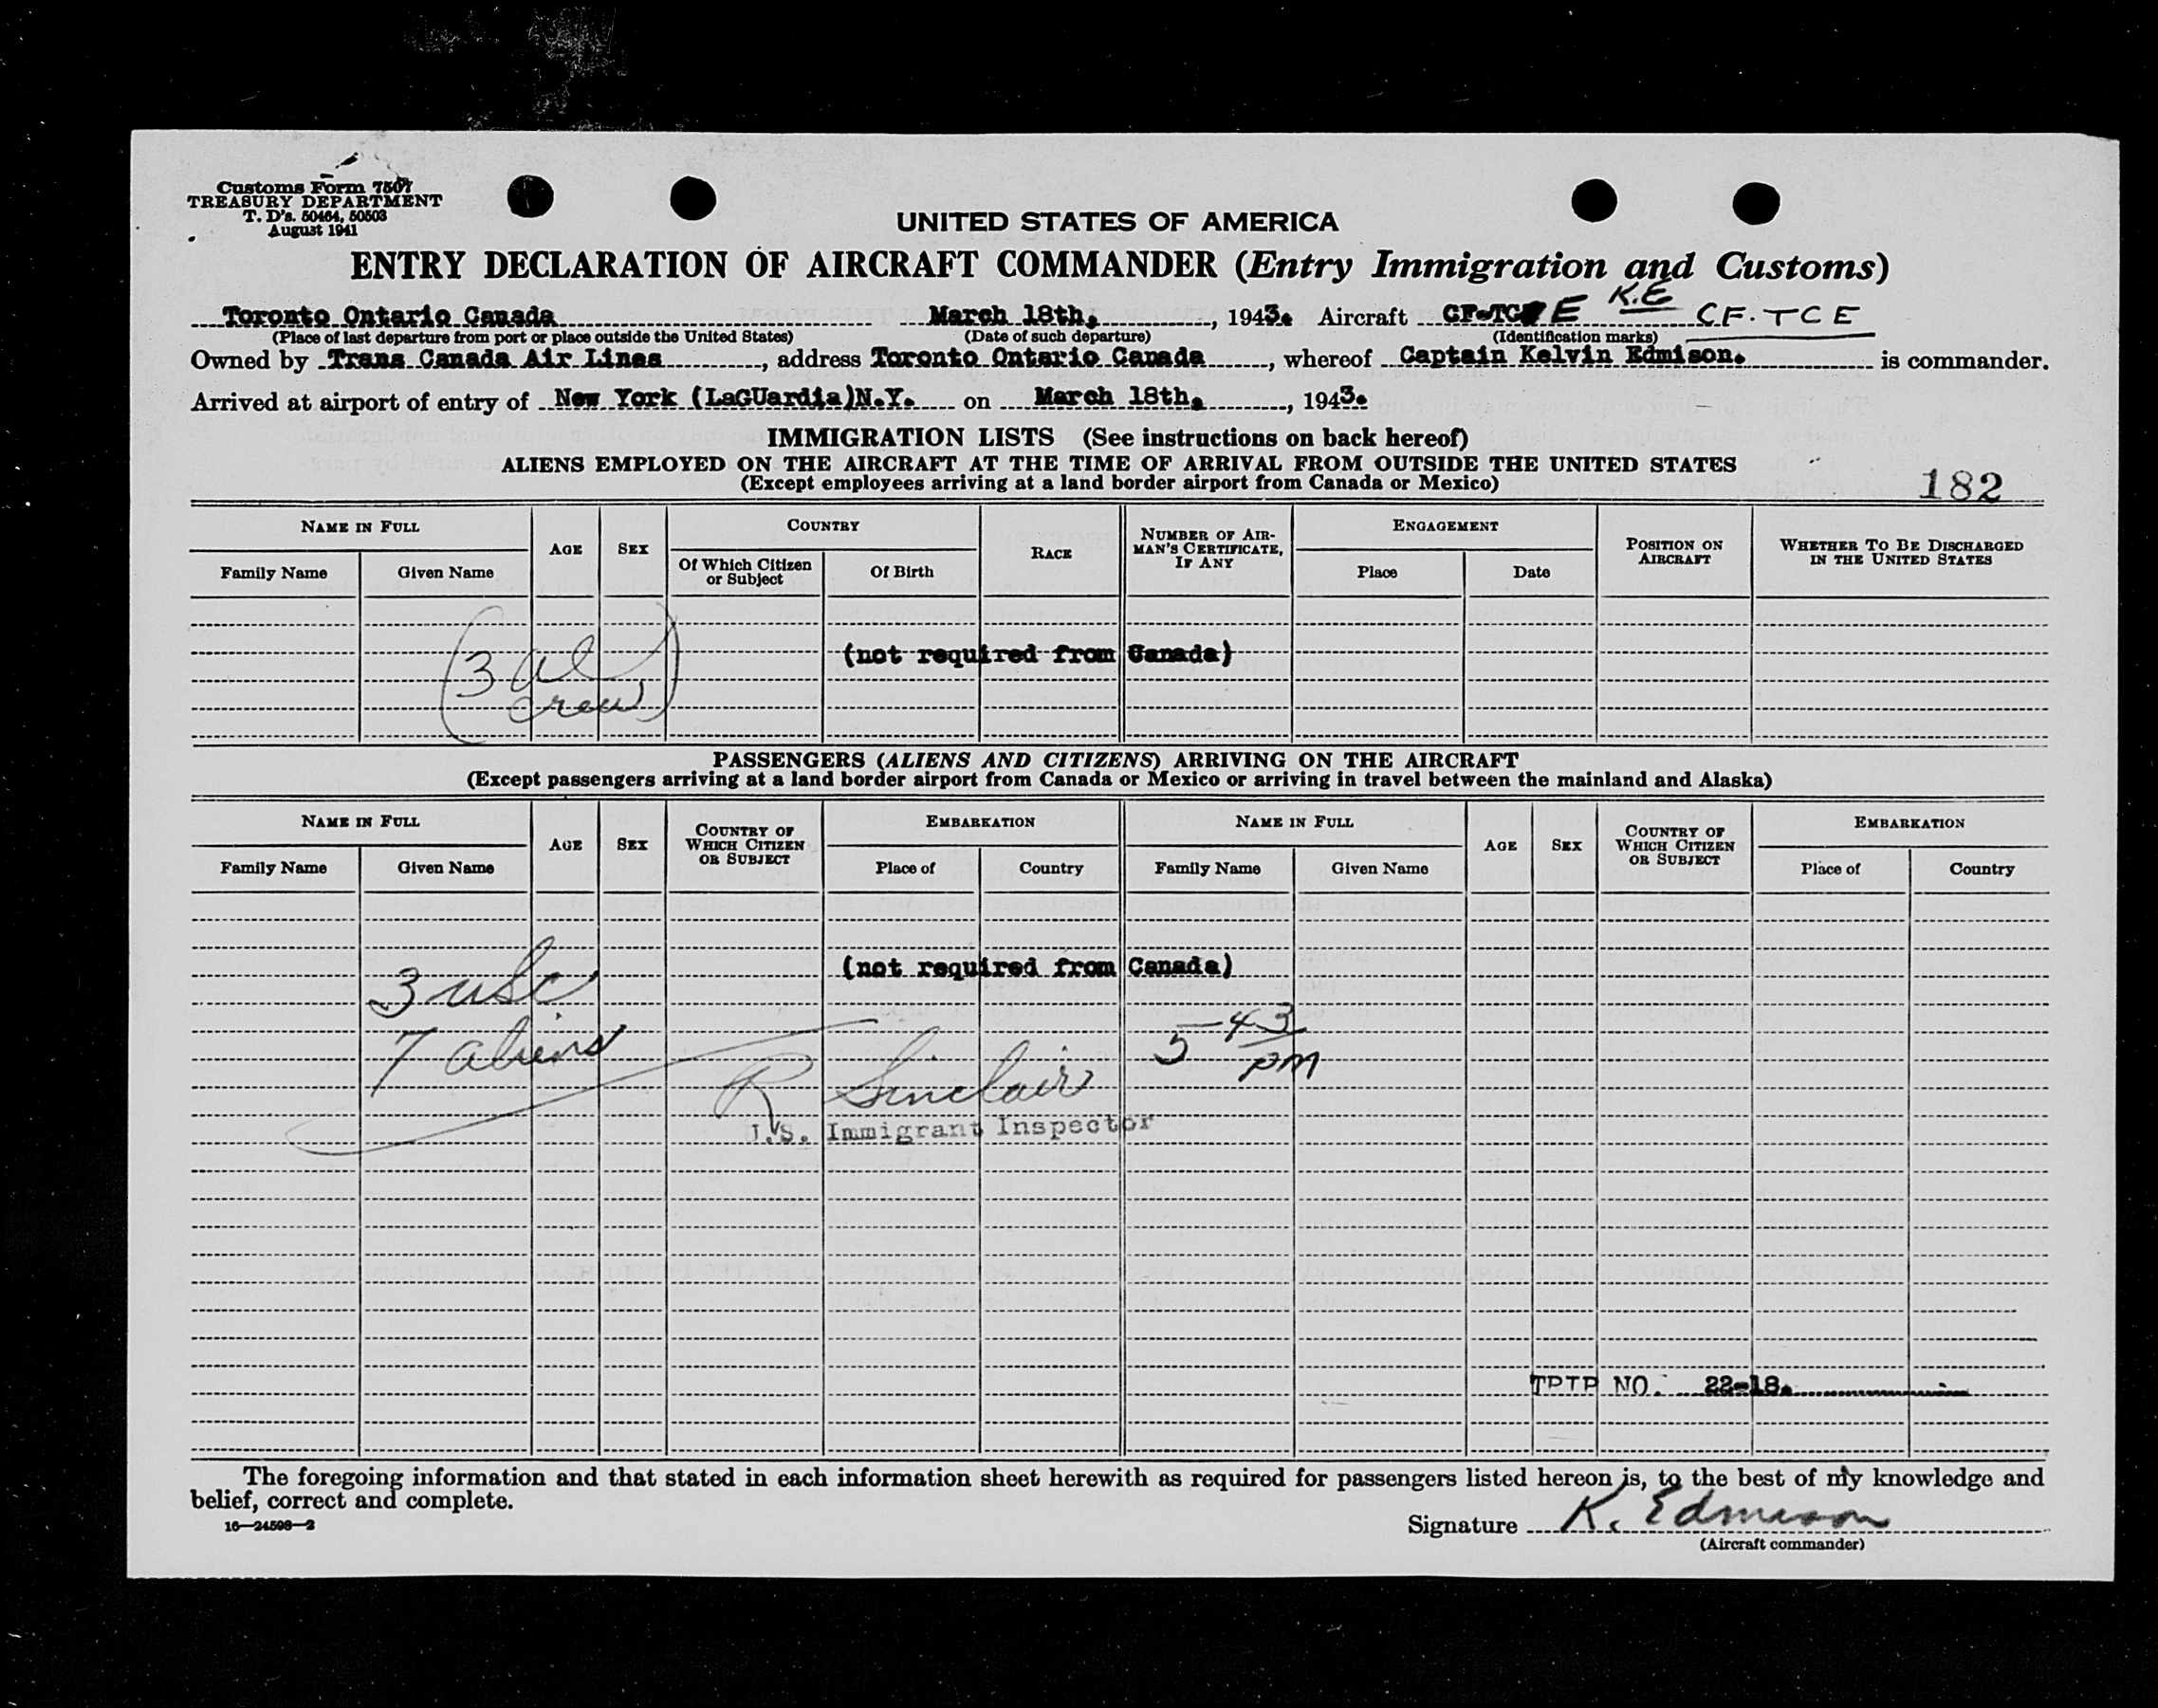 Customs Form 7507
TREASURY DEPARTMENT
T. D's. 50464, 50503
August 1941
UNITED STATES OF AMERICA
ENTRY DECLARATION OF AIRCRAFT COMMANDER (Entry Immigration and Customs)
K.E
Toronto Ontario Canada March 18th, , 1943. Aircraft CF-TC E CF.TCE
(Place of last departure from port or place outside the United States) (Date of such departure) (Identification marks)
Owned by Trans Canada Air Lines , address Toronto Ontario Canada , whereof Captain Kelvin Edmison. is commander.
Arrived at airport of entry of New York (LaGUardia)N.Y. on March 18th, , 1943.
IMMIGRATION LISTS (See instructions on back hereof)
ALIENS EMPLOYED ON THE AIRCRAFT AT THE TIME OF ARRIVAL FROM OUTSIDE THE UNITED STATES
(Except employees arriving at a land border airport from Canada or Mexico)
182
NAME IN FULL AGE SEX COUNTRY RACE NUMBER OF AIRMAN'S CERTIFICATE, IF ANY ENGAGEMENT POSITION ON AIRCRAFT WHETHER TO BE DISCHARGED IN THE UNITED STATES
Family Name Given Name Of Which Citizen or Subject Of Birth Place Date
(not required from Canada)
(3 al
crew)
PASSENGERS (ALIENS AND CITIZENS) ARRIVING ON THE AIRCRAFT
(Except passengers arriving at a land border airport from Canada or Mexico or arriving in travel between the mainland and Alaska)
NAME IN FULL AGE SEX COUNTRY OF WHICH CITIZEN OR SUBJECT EMBARKATION NAME IN FULL AGE SEX COUNTRY OF WHICH CITIZEN OR SUBJECT EMBARKATION
Family Name Given Name Place of Country Family Name Given Name Place of Country
(not required from Canada)
3 usc
7 aliens
5 43 pm
R Sinclair
U.S. Immigrant Inspector
TPTP NO. 22-18.
The foregoing information and that stated in each information sheet herewith as required for passengers listed hereon is, to the best of my knowledge and
belief, correct and complete.
16—24598-2
Signature K. Edmison
(Aircraft commander)